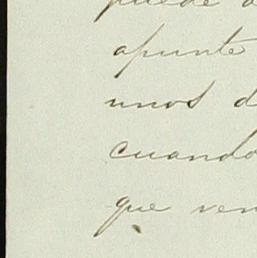 puede
apunte
unos d
cuando
que ven